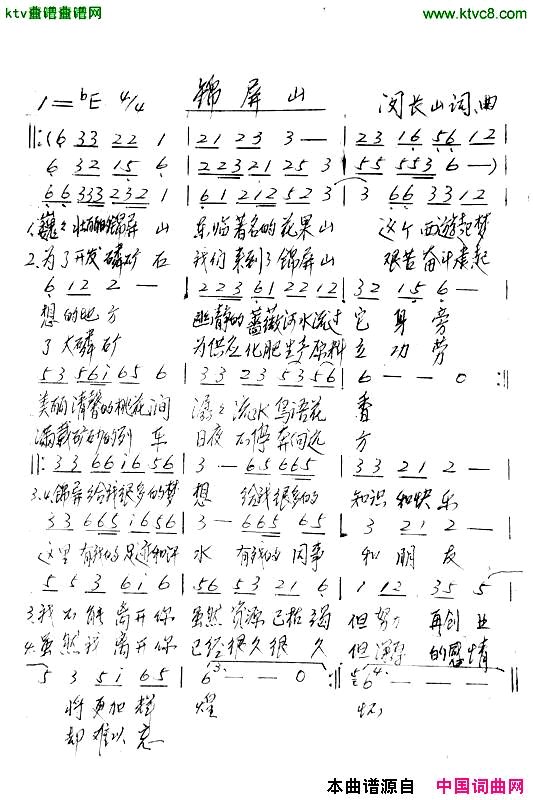 ktv蛊谱蛊谱网 www.ktvc8.com
锦屏山
1=bE 4/4 闵长山词、曲
‖:(6 33 22 1 | 21 23 3 — | 23 16 56 12 |
6 32 15 6 | 22321 25 3 | 55 553 6 —) |
66333232 1 | 61 212523 | 3 66 3312 |
1.巍々壮丽的锦屏山 东临著名的花果山 这个西遊起梦
2.为了开发磷矿石 我们来到了锦屏山 艰苦奋斗建起
6 12 2 — | 22361 2212 | 32 15 6 — |
想的地方 幽静的蔷薇河水流过它身旁
了大磷矿 为供应化肥生产原料立功劳
53 56i 65 6 | 33 23 5356 | 6 — — 0 :‖
美丽清馨的桃花涧 潺々流水鸟语花香
满载矿砂的列车 日夜不停奔向远方
‖: 33 66i656 | 3 — 65665 | 33 21 2 — |
3.4.锦屏给我很多的梦想 给我很多的知识和快乐
33 665i656 | 3 — 665 65 | 3 21 2 — |
这里有我的足迹和汗水 有我的同事和朋友
5 53 6i 6 | 56 53 21 6 | 1 12 35 5 |
3.我不能离开你 虽然资源已枯竭 但努力再创业
4.虽然我离开你 已经很久很久 但深厚的感情
5 3 5i 65 | 6 3. — — 0 :‖ 6 4. — — — |
将更加辉煌
却难以忘怀
本曲谱源自 中国词曲网